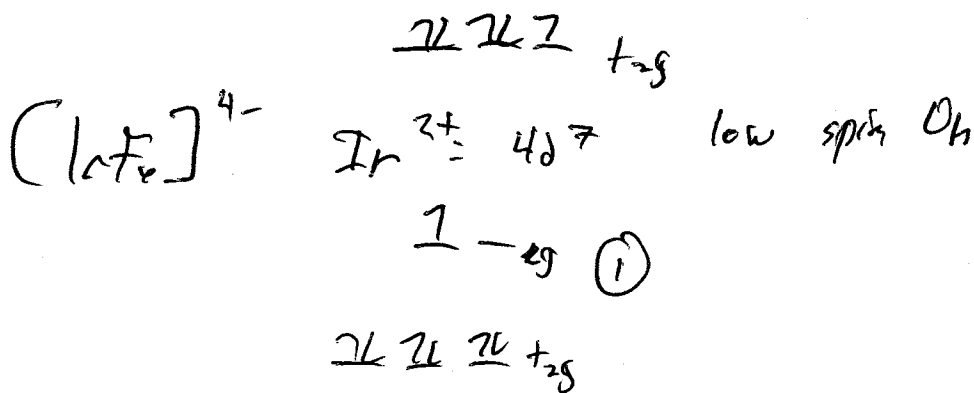 ⥮ ⥮ ↿ t₂g
[IrF₆]⁴⁻ Ir²⁺ = 4d⁷ low spin Oh
↿ _ eg ①
⥮ ⥮ ⥮ t₂g